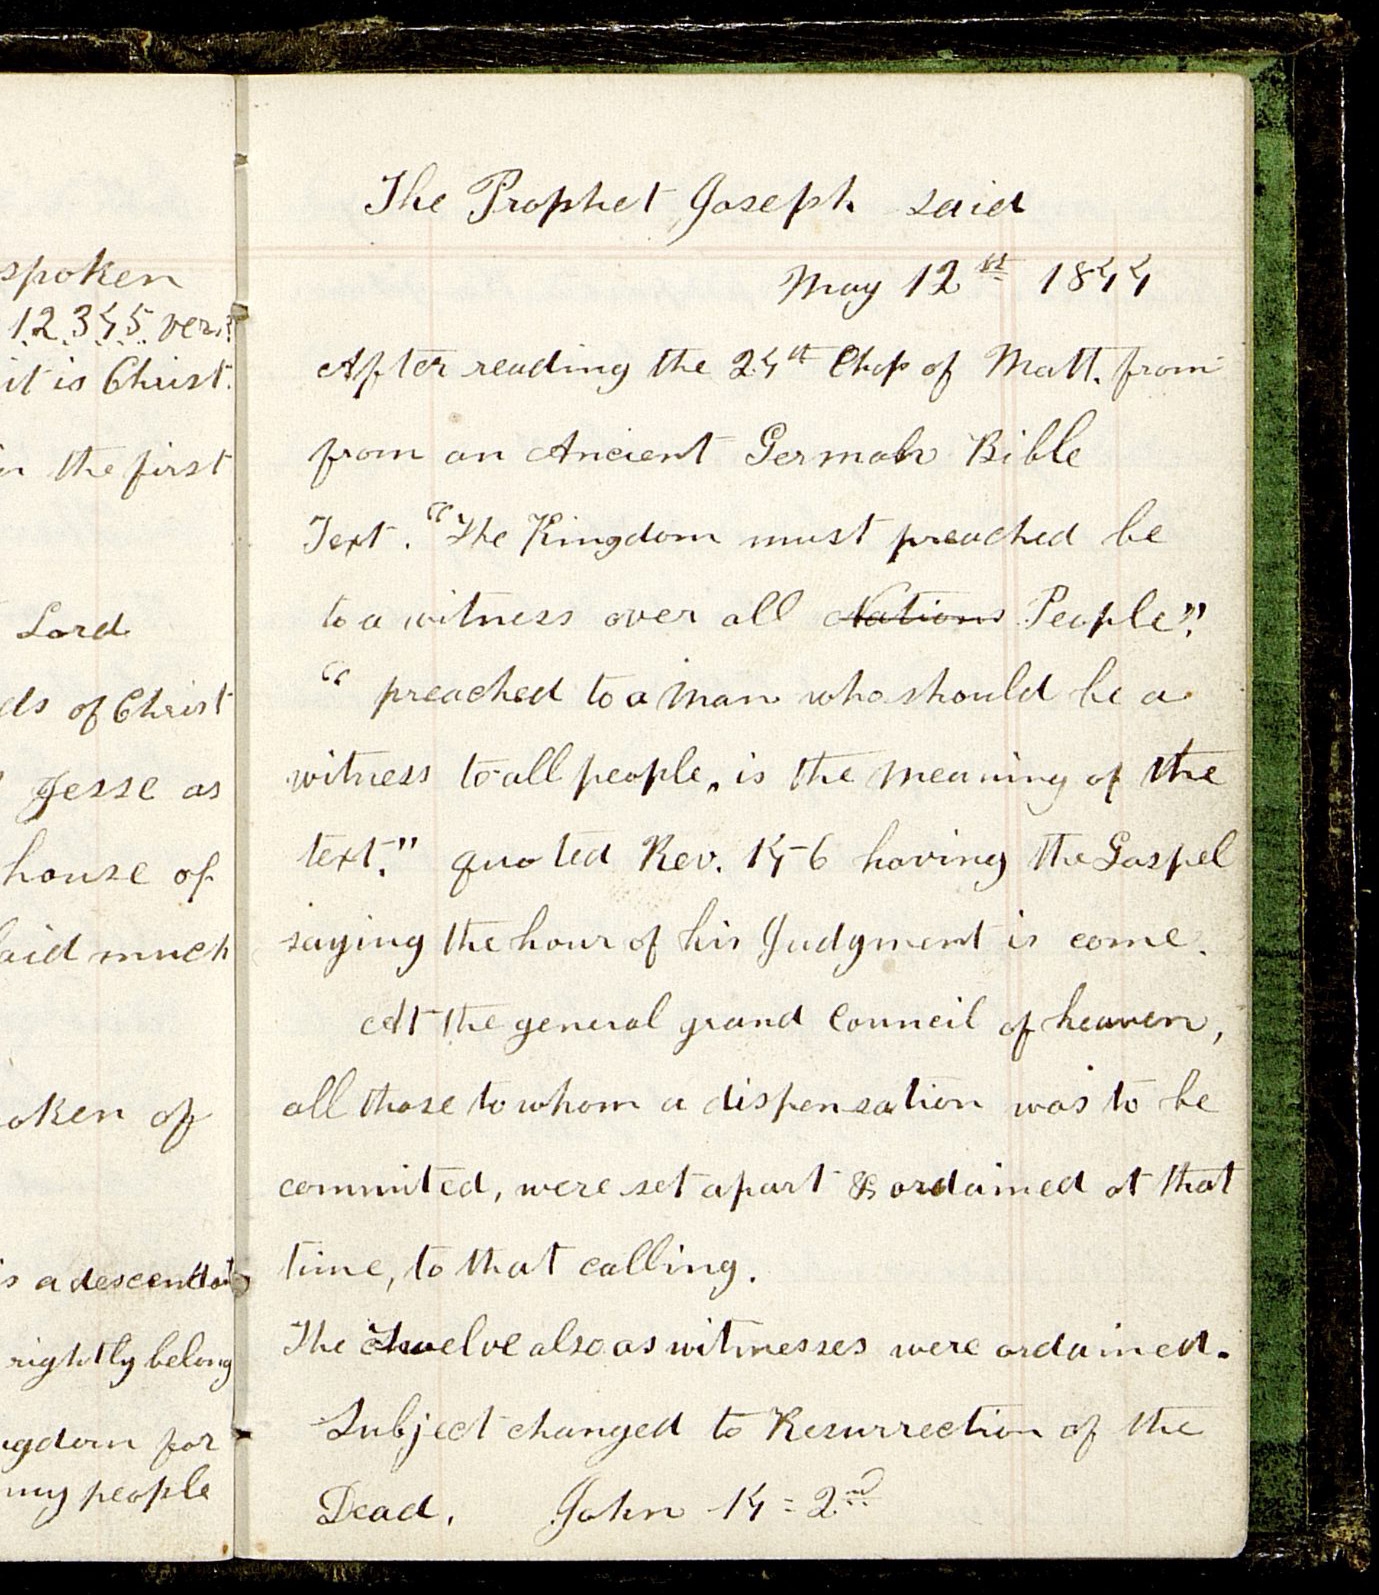 spoken
12345 vers.
it is Christ.
in the first
Lord
ds of Christ
Jesse as
house of
said much
oken of
is a descendant
rightly belong
ngdom for
my people
The Prophet Joseph said
May 12st 1844
After reading the 24th Chap of Matt. from
from an Ancient German Bible
Text. "The Kingdom must preached be
to a witness over all Nations People".
" preached to a man who should be a
witness to all people, is the meaning of the
text." quoted Rev. 14-6 having the Gospel
saying the hour of his Judgment is come.
At the general grand Council of heaven,
all those to whom a dispensation was to be
commited, were set apart & ordained at that
time, to that calling.
The Twelve also as witnesses were ordained.
Subject changed to Resurrection of the
Dead. John 14=2nd